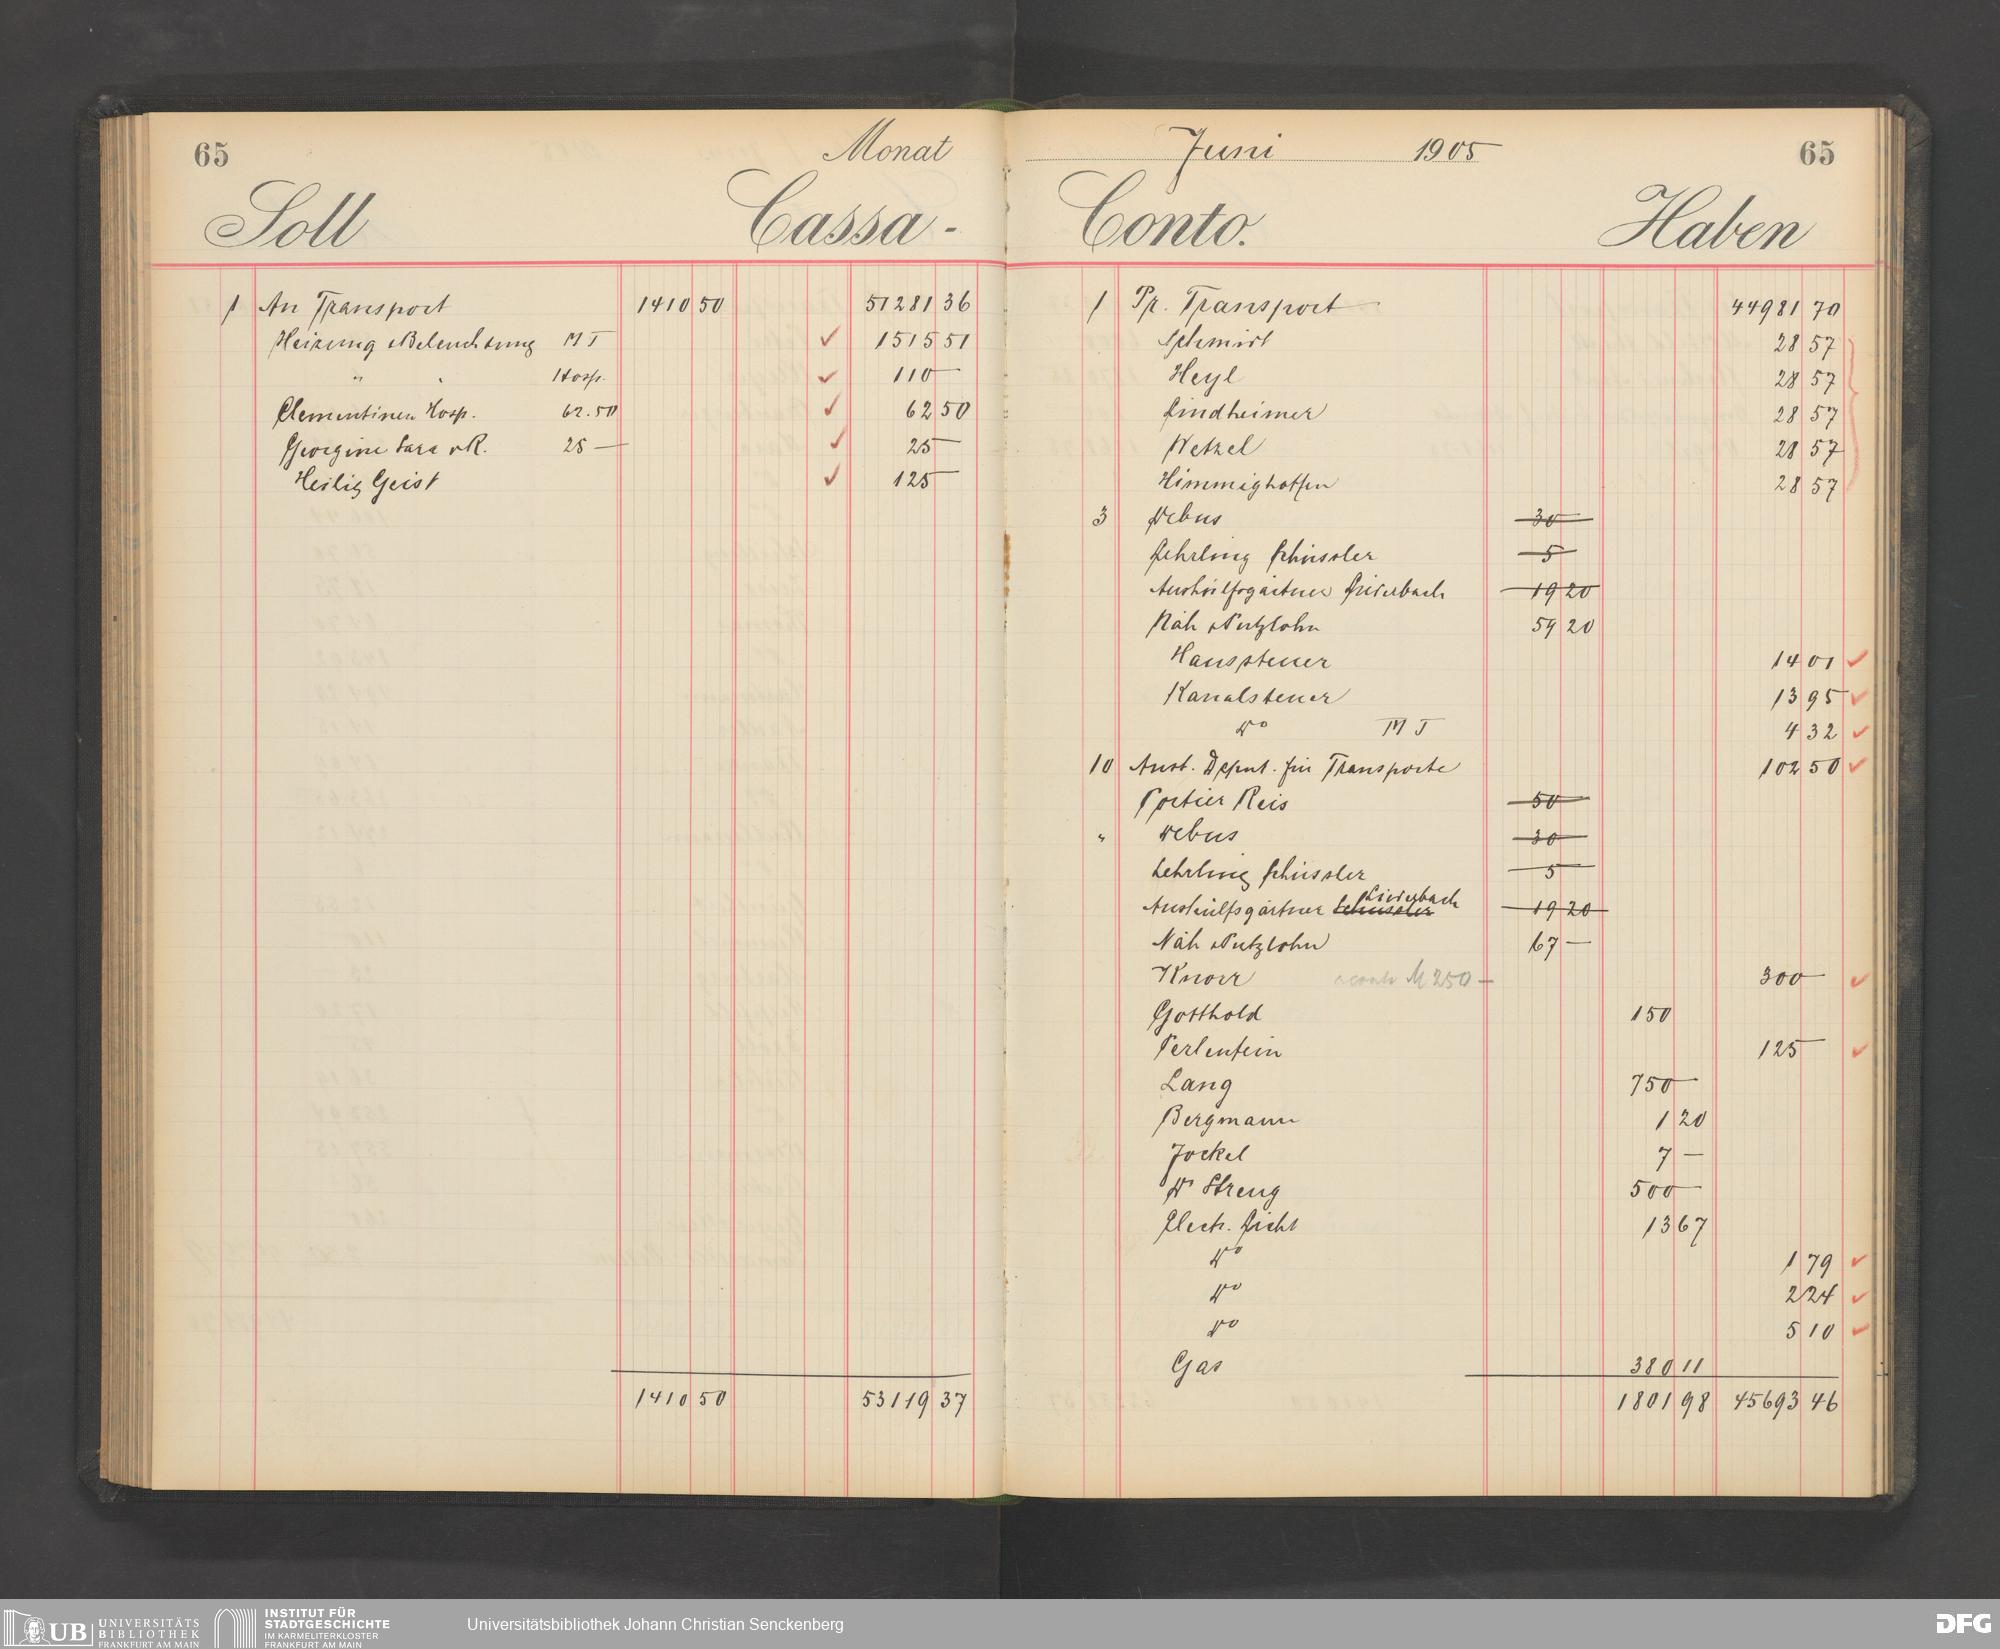 65 Monat
Soll Cassa-
1 An Transport 1410 50 51281 36
Heizung & Beleuchtung M T 1515 51
" " Hosp. 110 —
Clementinen Hosp. 62.50 62 50
Georgine Sara v R. 25 — 25 —
Heilig Geist 125 —
1410 50 53119 37
Juni 1905 65
Conto. Haben
1 Pr. Transport 44981 70
Schmidt 28 57
Heyl 28 57
Lindheimer 28 57
Wetzel 28 57
Himmighoffen 28 57
3 Debus 30 —
Lehrling Schüssler 5
Aushülfsgärtner Liederbach 19 20
Näh & Putzlohn 59 20
Haussteuer 14 01
Kanalsteuer 13 95
do M T 4 32
10 Anst. Deput. für Transporte 102 50
Portier Reis 50
" Debus 30
Lehrling Schüssler 5
Aushülfsgärtner Schüssler Liederbach 19 20
Näh & Putzlohn 67 —
Knorr aconto M 250 — 300 —
Gotthold 150
Perlenfein 125 —
Lang 750 —
Bergmann 1 20
Jockel 7 —
Dr Streng 500 —
Electr. Licht 13 67
do 1 79
do 2 24
do 5 10
Gas 380 11
1801 98 45693 46
UB UNIVERSITÄTS
BIBLIOTHEK
FRANKFURT AM MAIN
INSTITUT FÜR
STADTGESCHICHTE
IM KARMELITERKLOSTER
FRANKFURT AM MAIN
Universitätsbibliothek Johann Christian Senckenberg
DFG